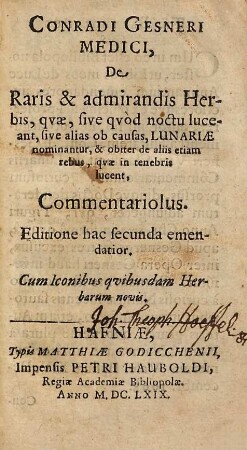 CONRADI GESNERI
MEDICI,
De
Raris & admirandis Her-
bis, qvæ, sive qvòd noctu luce-
ant, sive alias ob causas, LUNARIÆ
nominantur, & obiter de aliis etiam
rebus, qvæ in tenebris
lucent,
Commentariolus.
Editione hac secunda emen-
datior.
Cum Iconibus qvibusdam Her-
barum novis.
Joh. Theoph. Hoeffel.
HAFNIÆ,
Typis MATTHIÆ GODICCHENII,
Impensis PETRI HAUBOLDI,
Regiæ Academiæ Bibliopolæ.
ANNO M. DC. LXIX.